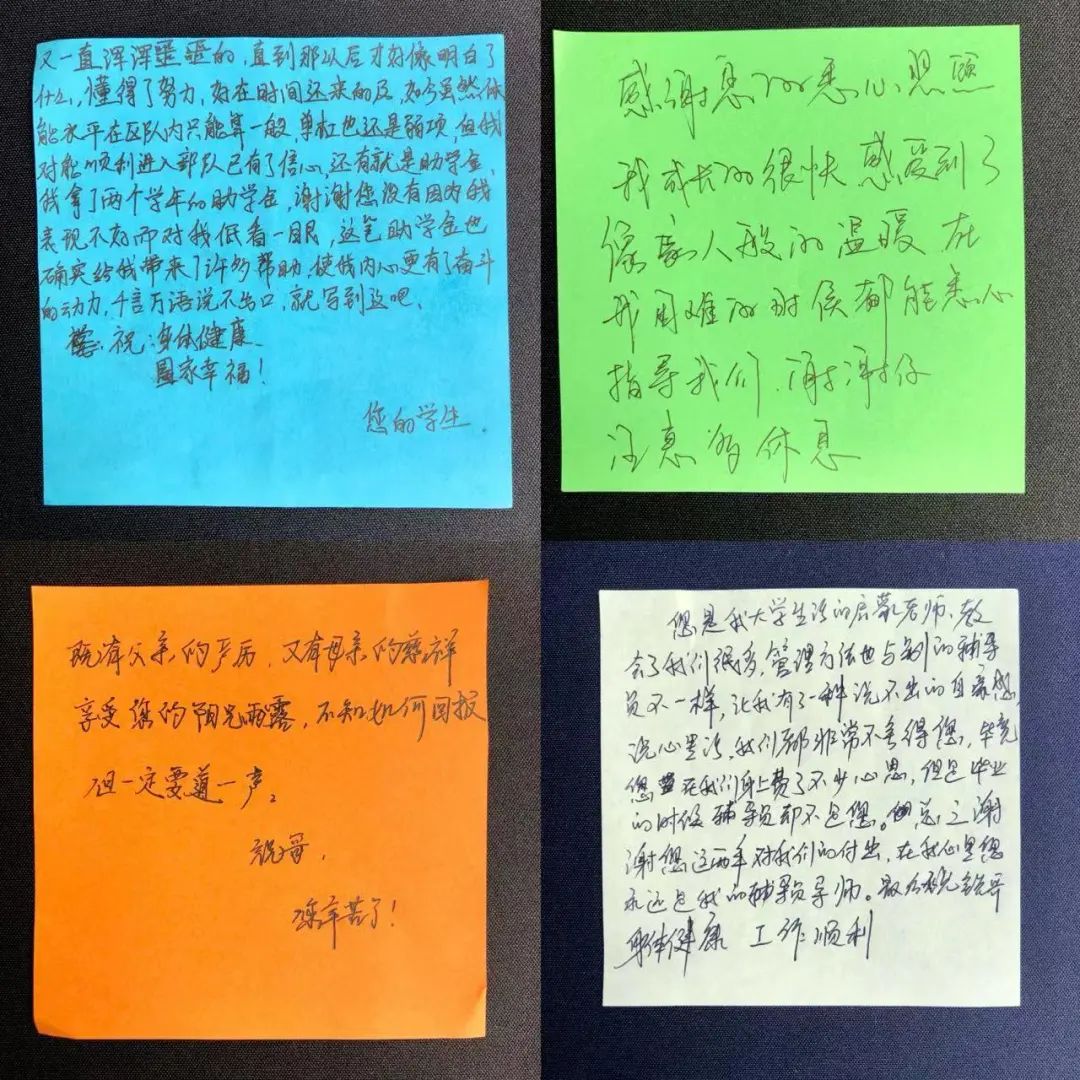 又一直浑浑噩噩的，直到那以后才好像明白了
什么，懂得了努力，好在时间还来的及，如今虽然体
能水平在区队内只能算一般，单杠也还是弱项，但我
对能顺利进入部队已有了信心，还有就是助学金，
我拿了两个学年的助学金，谢谢您没有因为我
表现不好而对我低看一眼，这笔助学金也
确实给我带来了许多帮助，使我内心更有了奋斗
的动力，千言万语说不出口，就写到这吧。
祝：身体健康、
阖家幸福！
您的学生．
感谢您的悉心照顾
我成长的很快 感受到了
像家人般的温暖 在
我困难的时侯都能悉心
指导我们．谢谢
注意多休息
既有父亲的严厉，又有母亲的慈祥
享受您的阳光雨露，不知如何回报
但一定要道一声。
锐哥，
您辛苦了！
您是我大学生活的启蒙老师，教
会了我们很多，管理方法也与别的辅导
员不一样，让我有了一种说不出的自豪感，
说心里话，我们都非常不舍得您，毕竟
您在我们身上费了不少心思，但是毕业
的时候辅导员却不是您。但总之谢
谢您这两年对我们的付出，在我心里您
永远是我的辅导员导师。最后祝锐哥
身体健康 工作顺利